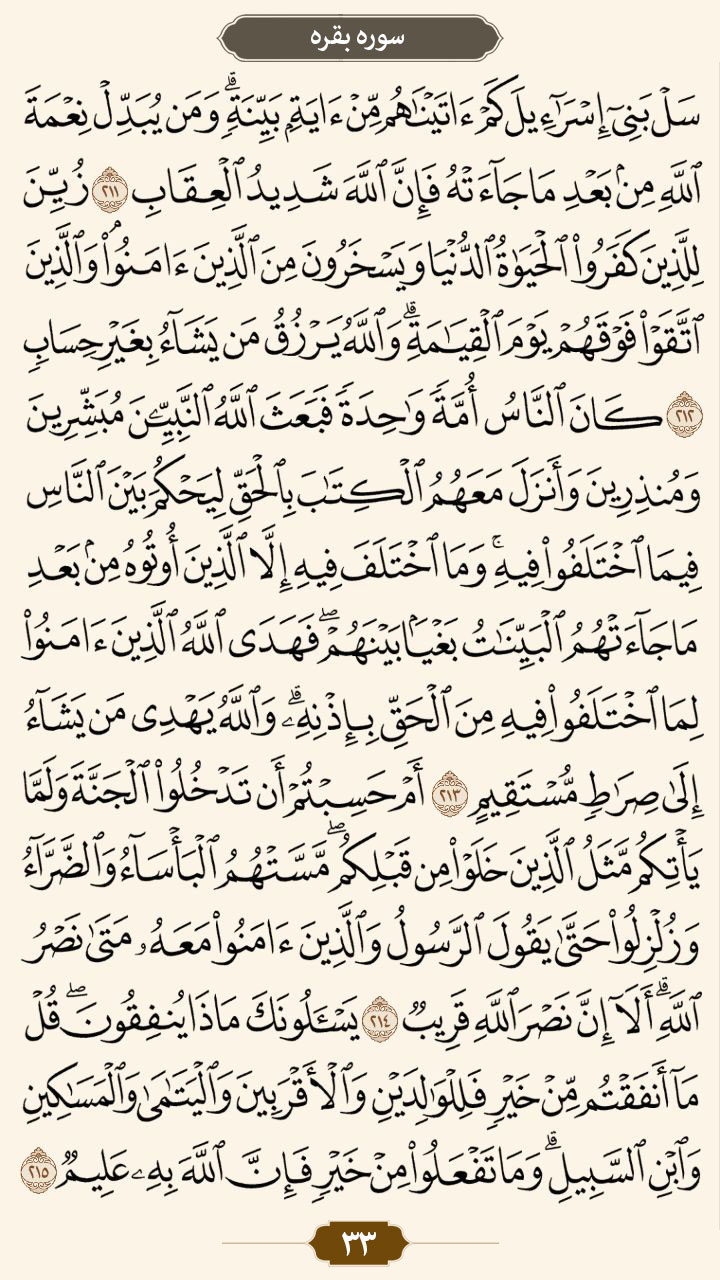 سوره بقره
سَلْ بَنِىٓ إِسْرَٰٓءِيلَ كَمْ ءَاتَيْنَٰهُم مِّنْ ءَايَةٍۭ بَيِّنَةٍۗ وَمَن يُبَدِّلْ نِعْمَةَ
ٱللَّهِ مِنۢ بَعْدِ مَا جَآءَتْهُ فَإِنَّ ٱللَّهَ شَدِيدُ ٱلْعِقَابِ ٢١١ زُيِّنَ
لِلَّذِينَ كَفَرُوا۟ ٱلْحَيَوٰةُ ٱلدُّنْيَا وَيَسْخَرُونَ مِنَ ٱلَّذِينَ ءَامَنُوا۟ۘ وَٱلَّذِينَ
ٱتَّقَوْا۟ فَوْقَهُمْ يَوْمَ ٱلْقِيَٰمَةِۗ وَٱللَّهُ يَرْزُقُ مَن يَشَآءُ بِغَيْرِ حِسَابٍ
٢١٢ كَانَ ٱلنَّاسُ أُمَّةً وَٰحِدَةً فَبَعَثَ ٱللَّهُ ٱلنَّبِيِّـۧنَ مُبَشِّرِينَ
وَمُنذِرِينَ وَأَنزَلَ مَعَهُمُ ٱلْكِتَٰبَ بِٱلْحَقِّ لِيَحْكُمَ بَيْنَ ٱلنَّاسِ
فِيمَا ٱخْتَلَفُوا۟ فِيهِۚ وَمَا ٱخْتَلَفَ فِيهِ إِلَّا ٱلَّذِينَ أُوتُوهُ مِنۢ بَعْدِ
مَا جَآءَتْهُمُ ٱلْبَيِّنَٰتُ بَغْيَۢا بَيْنَهُمْۖ فَهَدَى ٱللَّهُ ٱلَّذِينَ ءَامَنُوا۟
لِمَا ٱخْتَلَفُوا۟ فِيهِ مِنَ ٱلْحَقِّ بِإِذْنِهِۦۗ وَٱللَّهُ يَهْدِى مَن يَشَآءُ
إِلَىٰ صِرَٰطٍ مُّسْتَقِيمٍ ٢١٣ أَمْ حَسِبْتُمْ أَن تَدْخُلُوا۟ ٱلْجَنَّةَ وَلَمَّا
يَأْتِكُم مَّثَلُ ٱلَّذِينَ خَلَوْا۟ مِن قَبْلِكُمۖ مَّسَّتْهُمُ ٱلْبَأْسَآءُ وَٱلضَّرَّآءُ
وَزُلْزِلُوا۟ حَتَّىٰ يَقُولَ ٱلرَّسُولُ وَٱلَّذِينَ ءَامَنُوا۟ مَعَهُۥ مَتَىٰ نَصْرُ
ٱللَّهِۗ أَلَآ إِنَّ نَصْرَ ٱللَّهِ قَرِيبٌ ٢١٤ يَسْـَٔلُونَكَ مَاذَا يُنفِقُونَۖ قُلْ
مَآ أَنفَقْتُم مِّنْ خَيْرٍ فَلِلْوَٰلِدَيْنِ وَٱلْأَقْرَبِينَ وَٱلْيَتَٰمَىٰ وَٱلْمَسَٰكِينِ
وَٱبْنِ ٱلسَّبِيلِۗ وَمَا تَفْعَلُوا۟ مِنْ خَيْرٍ فَإِنَّ ٱللَّهَ بِهِۦ عَلِيمٌ ٢١٥
٣٣